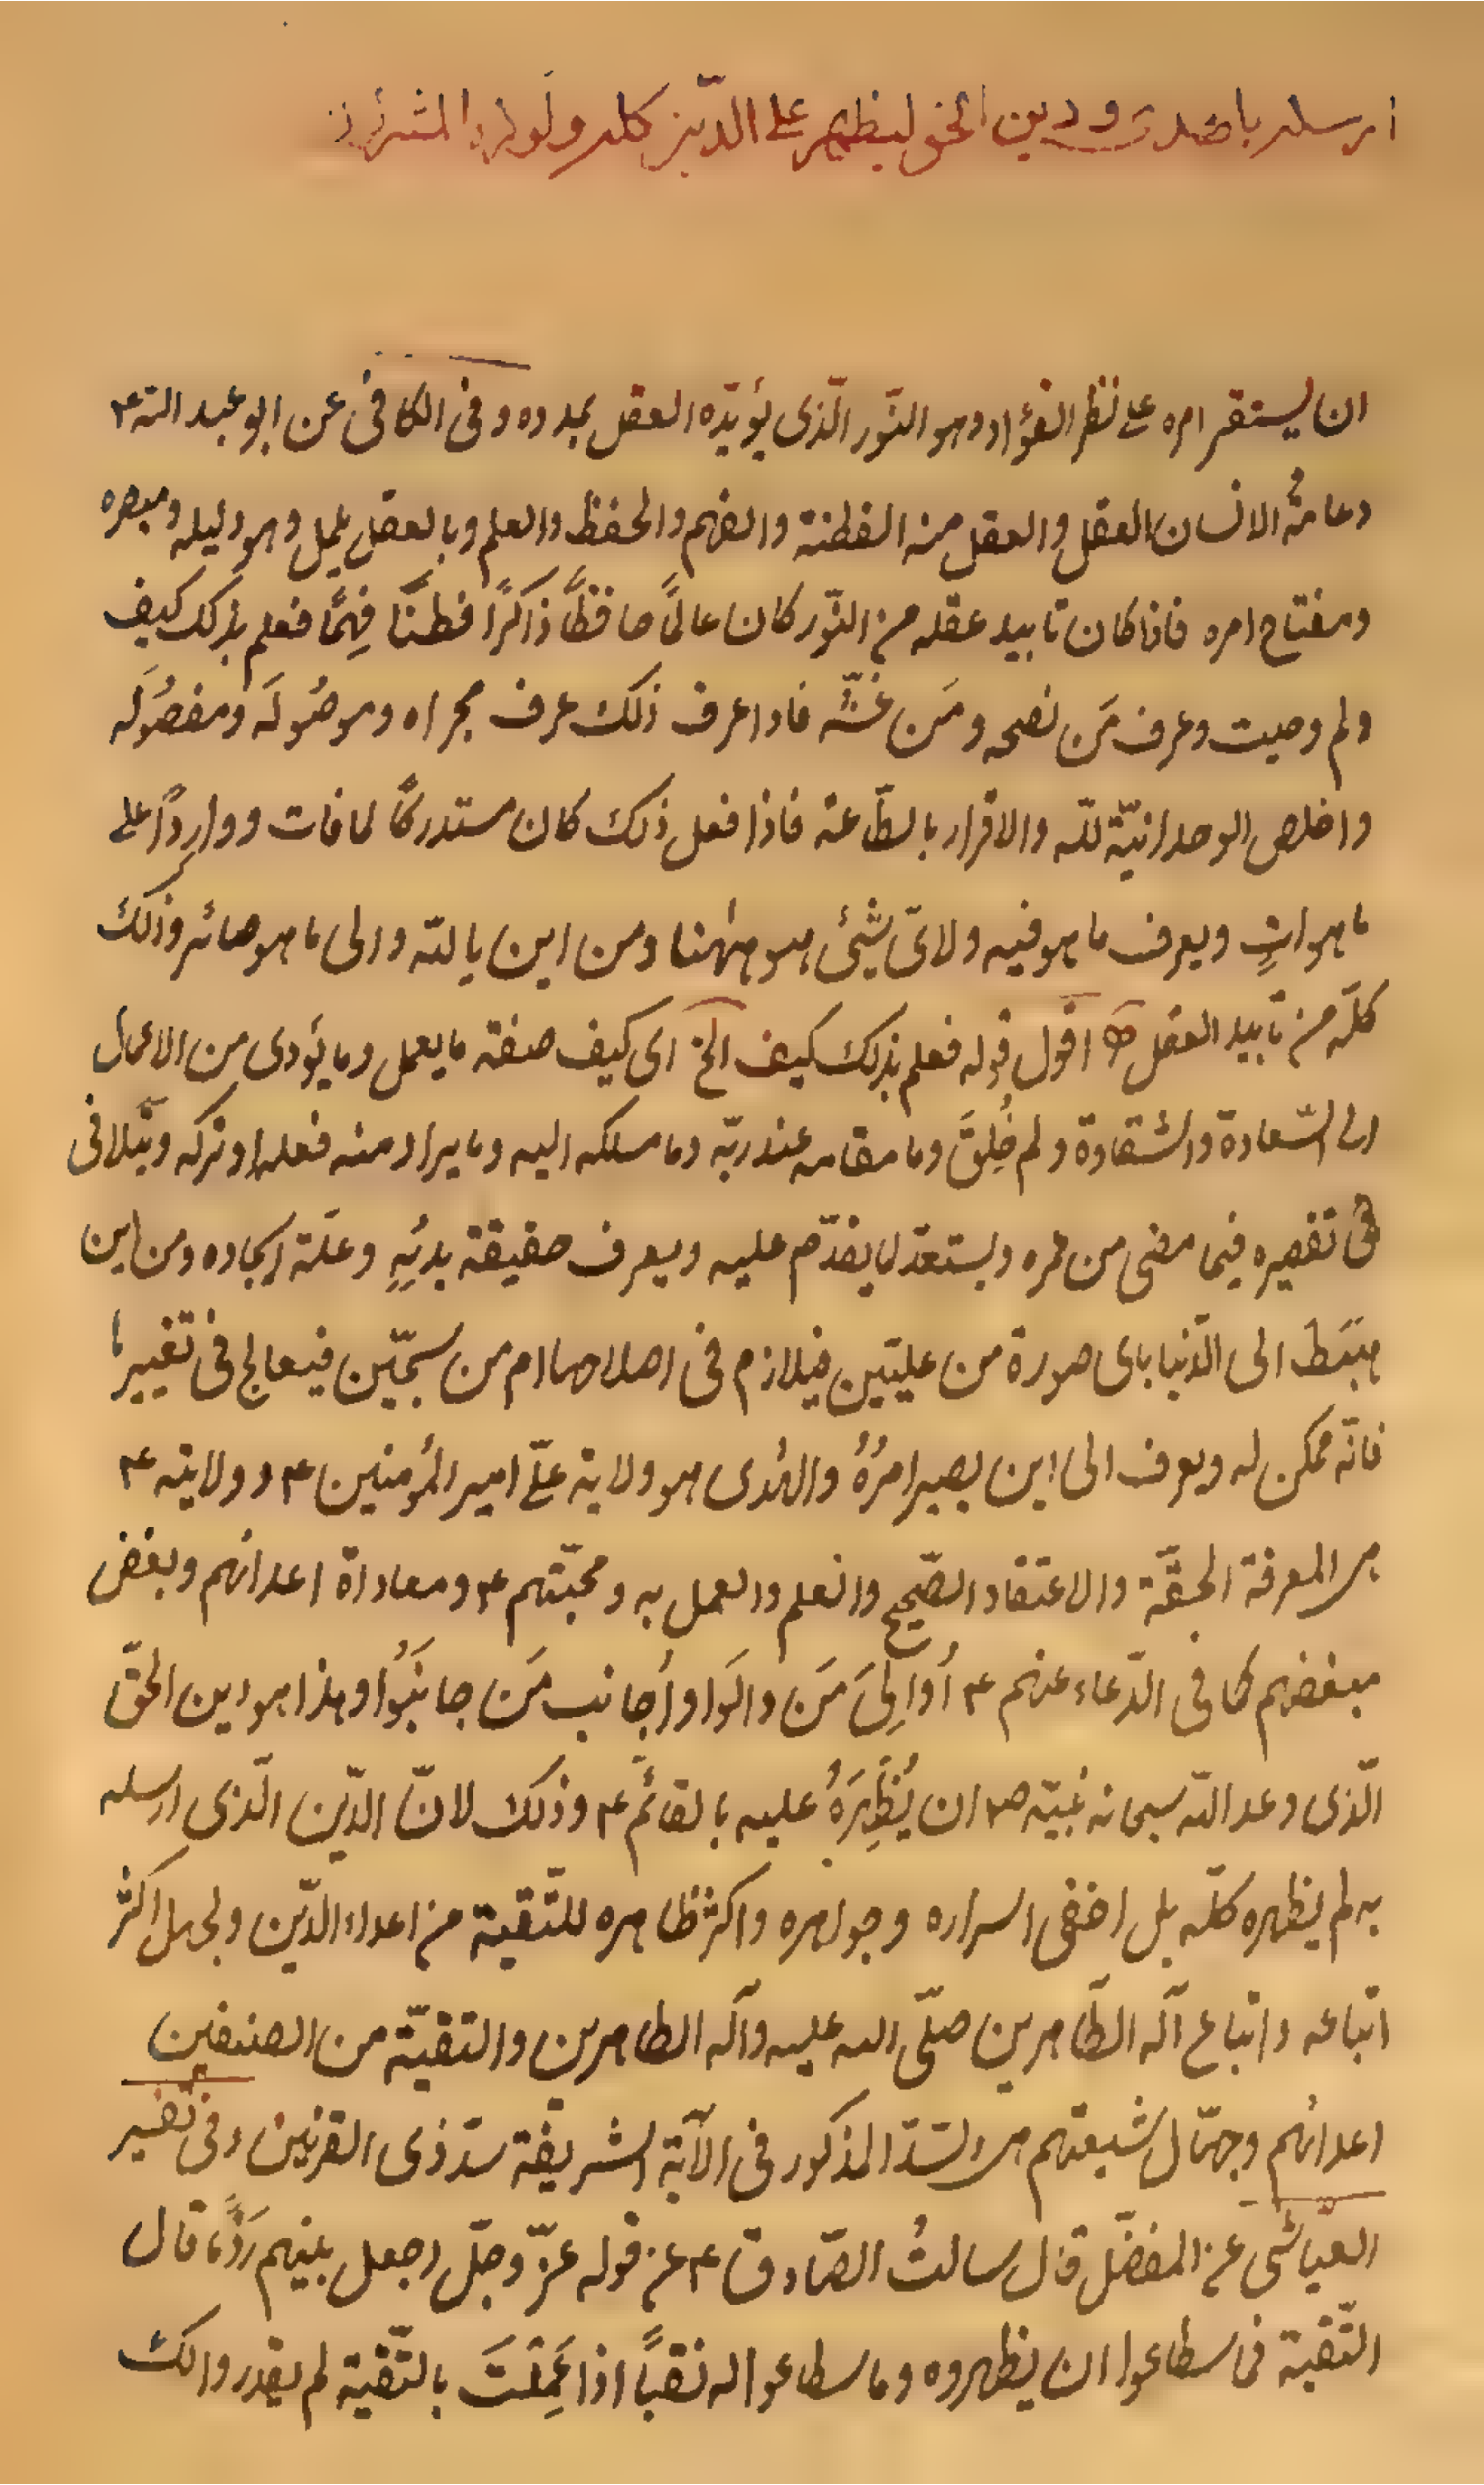 ارسله بالهدى ودين الحق ليظهره على الدين كله ولو كره المشركون
ان يستقر امره على نظر الفؤاد وهو النّور الّذى يؤيّده العقل بمدده وفى الكافى عن ابو عبد اللّه ع
دعامة الانسان العقل والعقل منه الفطنة والفهم والحفظ والعلم وبالعقل يكمل وهو دليله ومبصره
ومفتاح امره فاذا كان تاييد عقله من النّور كان عالمًا حافظًا ذاكرًا فطنًا فهِمًا فعلم بذلك كيف
ولم وحيث وعرف مَن نصحه ومَن غشّه فاذا عرف ذلك عرف مجراه وموصُوله ومفصُوله
واخلص الوحدانيّة للّه والاقرار بالطّاعة فاذا فعل ذلك كان مستدركًا لما فات وواردًا على
ما هو اتٍ ويعرف ما هو فيه ولاىّ شيئ هو هٰهنا ومن اين ياتيه والى ما هو صائر وذلك
كلّه من تاييد العقل اقول قوله فعلم بذلك كيف الخ اى كيف صفة ما يعمل وما يؤدى من الاعمال
الى السّعادة والشقاوة ولم خُلِقَ وما مقامه عند ربّه وما مسلكه اليه وما يراد منه فعله او تركه ويتلافى
فى تقصيره فيما مضى من عمره ويستعد لما يقدّم عليه ويعرف حقيقة بدئِهِ وعلّة ايجاده ومن اين
هبَطَ الى الدّنيا باى صورة من علّيّين فيلازم فى اصلاحها ام من سجّين فيعالج فى تغييرها
فانّه ممكن له ويعرف الى اين يصير امرُهُ والهُدى هو ولاية علىّ امير المؤمنين ع و ولايته ع
هى المعرفة الحقّة والاعتقاد الصّحيح والعلم والعمل به ومحبّتهم ع ومعاداة اعدائهم وبغض
مبغضهم كما فى الدّعاء عنهم ع أُوالِىَ مَن والَوا واُجانب مَن جانَبُوا وهذا هو دين الحقّ
الّذى وعد اللّه سبحانه نبيّه ص ان يُظْهِرَهُ عليه بالقائم ع وذلك لانّ الدّين الّذى ارسله
به لم يظهره كلّه بل اخفى اسراره وجواهره واكثر ظاهره للتّقية من اعداء الدّين ولجهل اكثر
اتباعه واتباع آله الطّاهرين صلّى الله عليه وآله الطاهرين والتقيّة من الصنفين
اعدائهم وجهّال شيعتهم هى السّدّ المذكور فى الآية الشريفة سدّ ذى القرنين وفى تفسير
العيّاشى عن المفضّل قال سالتُ الصّادق ع عن قوله عزّ وجلّ اجعل بينهم رَدْمًا قال
التّقية فما سطاعوا ان يظهروه وما سطاعوا له نقبًا اذا عَمِلْتَ بالتّقية لم يقدروا لك